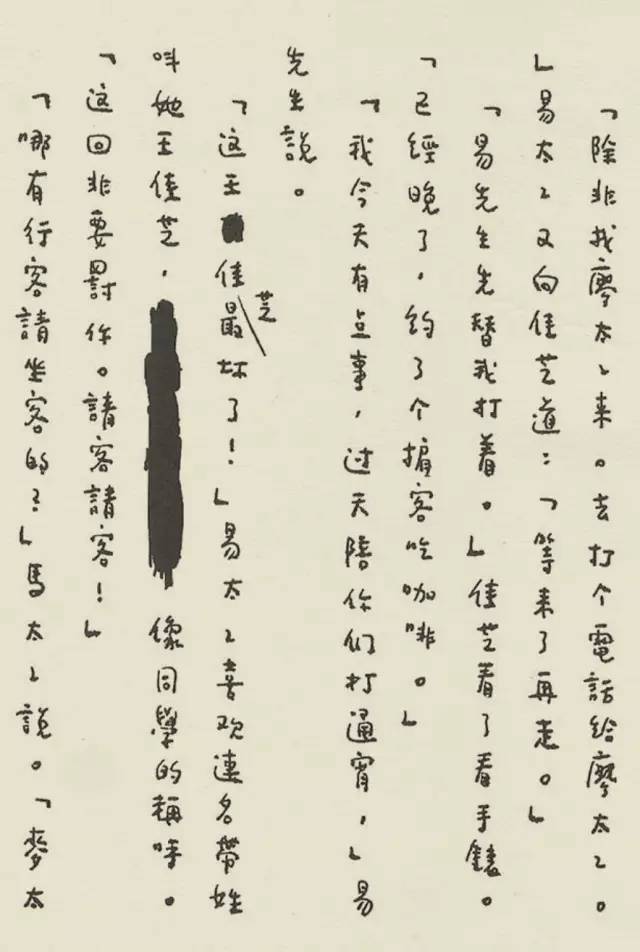 「除非找廖太〻来。去打个電話給廖太〻。
」易太〻又向佳芝道：「等来了再走。」
「易先生先替我打着。」佳芝看了看手錶。
「已經晚了，约了个掮客吃咖啡。」
「我今天有点事，过天陪你们打通宵，」易
先生說。
「这王佳芝最坏了！」易太〻喜欢連名帶姓
叫她王佳芝，像同學的稱呼。
「这回非要罸你。請客請客！」
「哪有行客請坐客的？」馬太〻說。「麥太